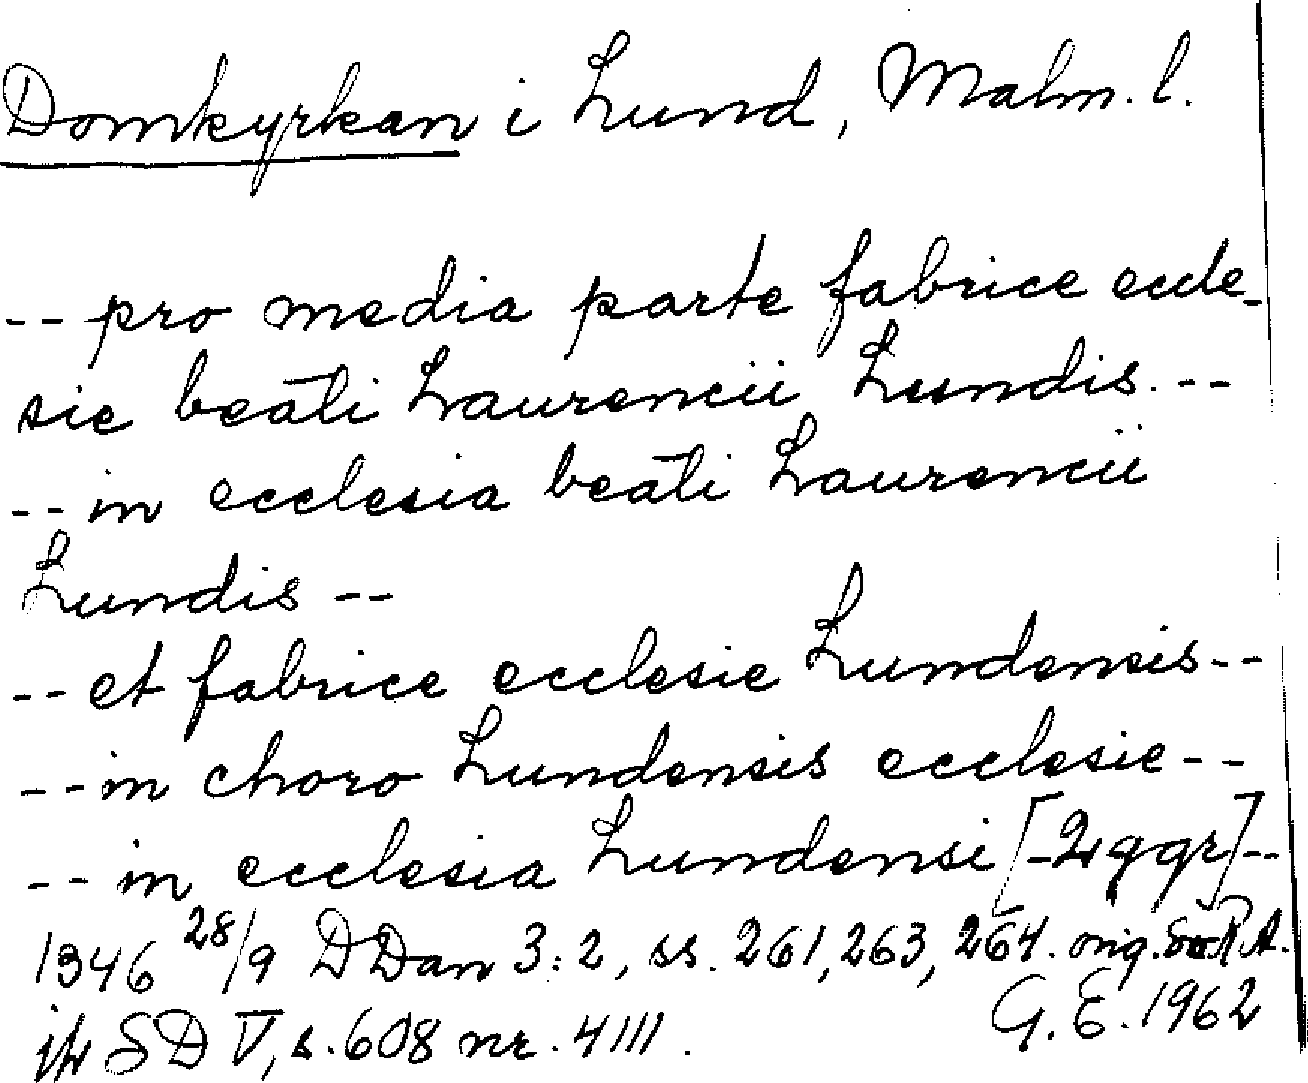 Domkyrkan i Lund, Malm. l.
-- pro media parte fabrice eccle-
sie beati Laurencii Lundis. --
-- in ecclesia beati Laurencii
Lundis --
-- et fabrice ecclesie Lundensis --
-- in choro Lundensis ecclesie --
-- in ecclesia Lundensi [- 2 ggr] --
1346 28/9 DDan 3:2, ss. 261, 263, 264. orig. Sv.R.A.
jfr SD V, s. 608 nr. 4111.
G.E. 1962